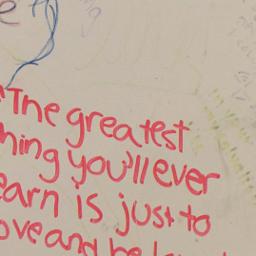 The greatest
hing you'll ever
earn is just to
ove and be